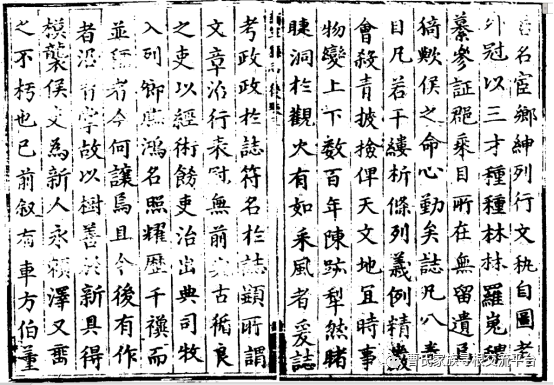 名宦鄉紳列行文執自圖考
外冠以三才種種林林羅嵬稗
纂參証郡乘目所在無留遺
猗歟侯之命心動矣誌凡八
目凡若干縷析條列義例精
會殺青披撿俾天文地宜時事
物變上下数百年陳跡犁然睹
睫洞於觀火有如采風者爰誌
考政政於誌符名於誌顯所謂
文章行表無前古循良
之吏以經術飭吏治出典司牧
入列卿鴻名照耀歷千禩而
並稱者今何讓焉且今後有作
者有學故以樹善新具得
模襲侯為新人永賴澤又
之不朽也已前叙有車方伯董